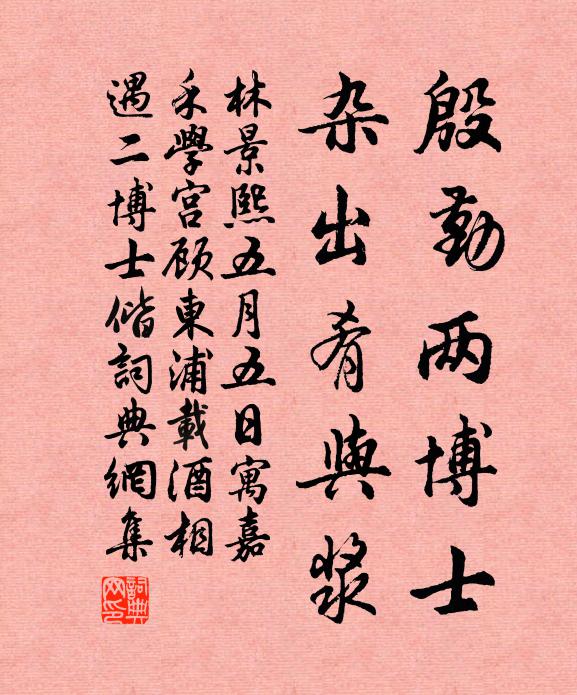 殷勤两博士
杂出肴與漿
林景熙五月五日寓嘉
禾學宮顾東浦載酒相
遇二博士偕詞典網集
詞典网印